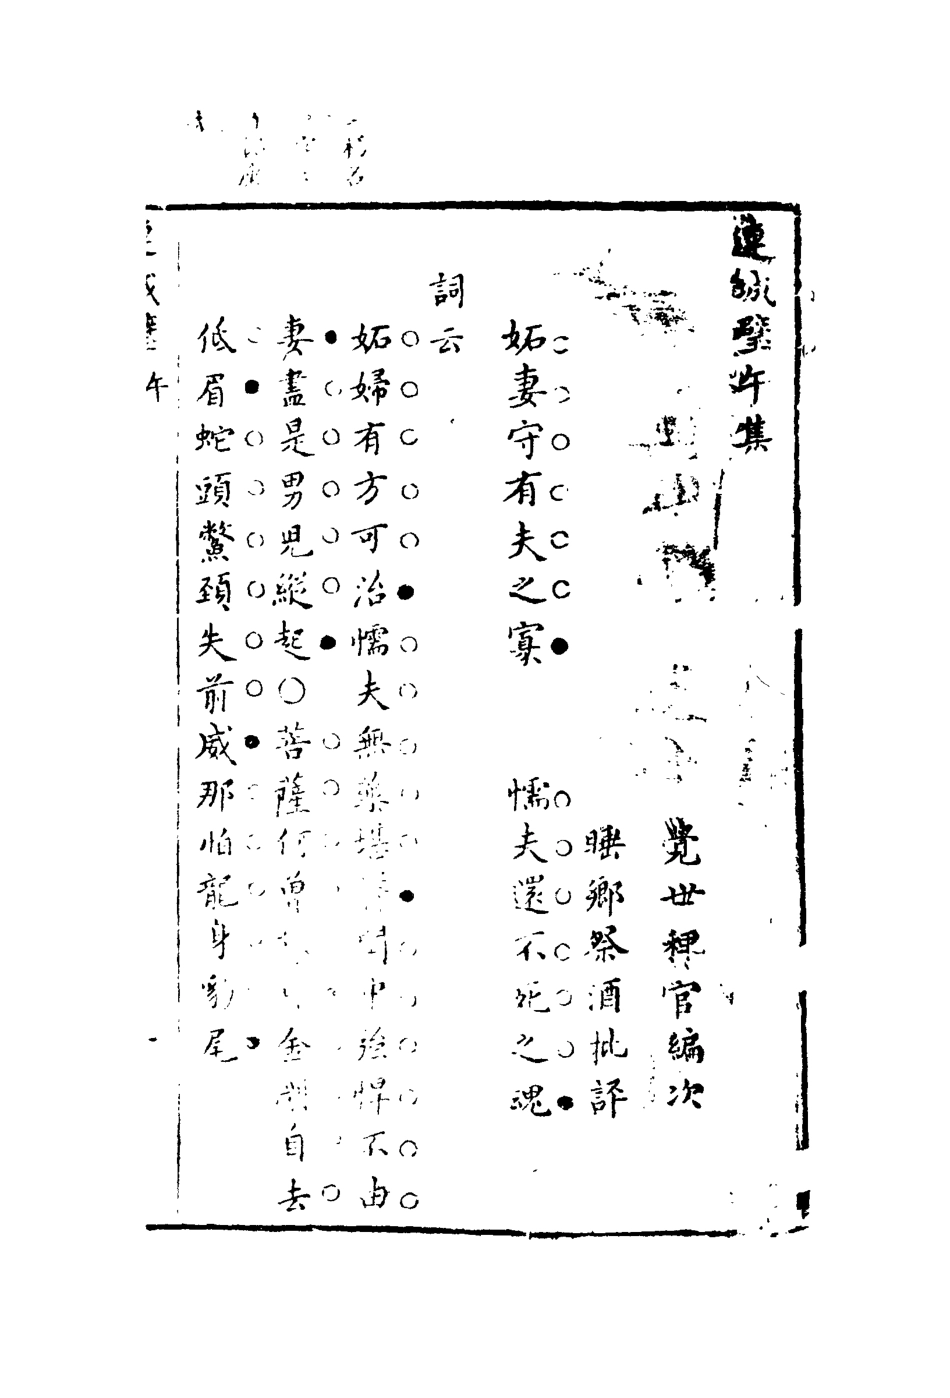 連城璧午集
覺世稗官編次
睡鄉祭酒批評
妬妻守有夫之寡　懦夫還不死之魂
詞云
妬婦有方可治懦夫無藥堪中強悍不由
妻盡是男兒縱起○菩薩何曾金剛自去
低眉蛇頭鱉頸失前威那怕龍身豹尾
連城璧 午